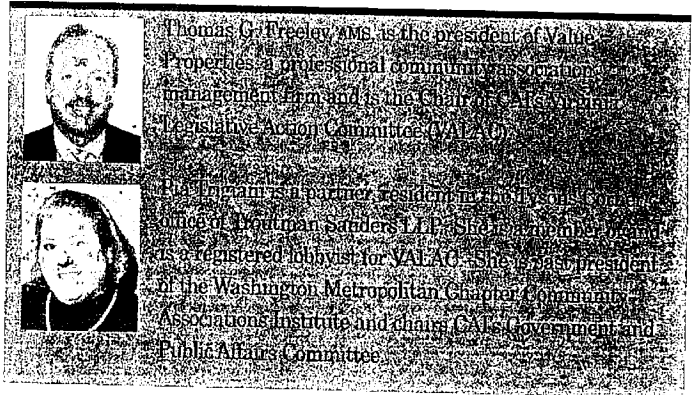 Thomas G. Freeley, AMS, is the president of Value
Properties, a professional community association
management firm and is the Chair of CAI's Virginia
Legislative Action Committee (VALAC).
Pia Trigiani is a partner, resident in the Tysons Corner
office of Troutman Sanders LLP. She is a member of and
is a registered lobbyist for VALAC. She is past president
of the Washington Metropolitan Chapter Community
Associations Institute and chairs CAI's Government and
Public Affairs Committee.